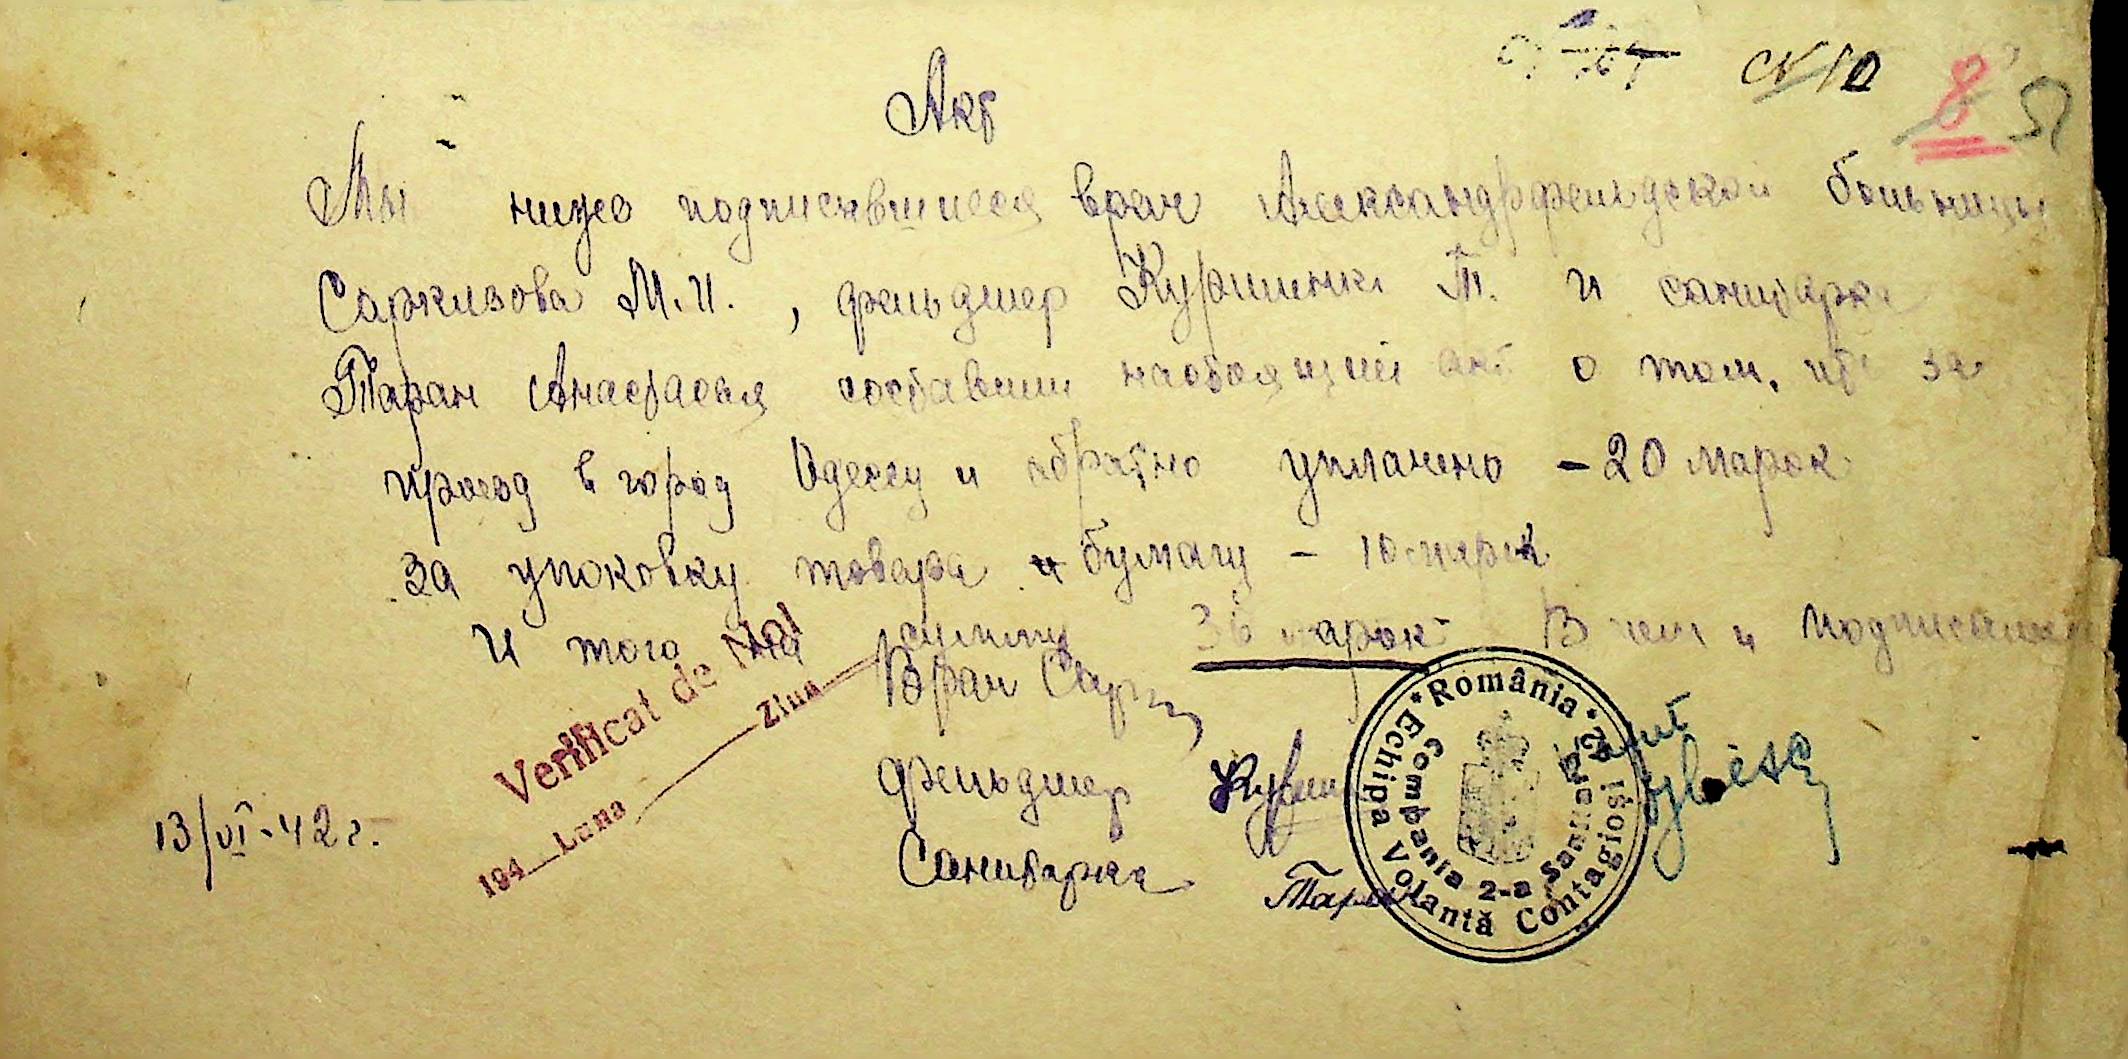 № 10
8
51
Акт
Мы ниже подписавшиеся врач Александрфельдской больницы
Саркизова М.И., фельдшер Т. и санитарка
Таран Анастасия составили настоящий акт о том, что за
проезд в город Одессу и обратно уплачено – 20 марок
за упоковку товара и бумагу – 10 марок
И того на сумму 30 марок В чем и подписалис
Врач Сарк
фельдшер
Санитарка Таран
13/VI-42 г.
Verificat de Noi
194 Luna Ziua
* România * Echipa Volantă Contagioși 2
Compania 2-a Sanitară